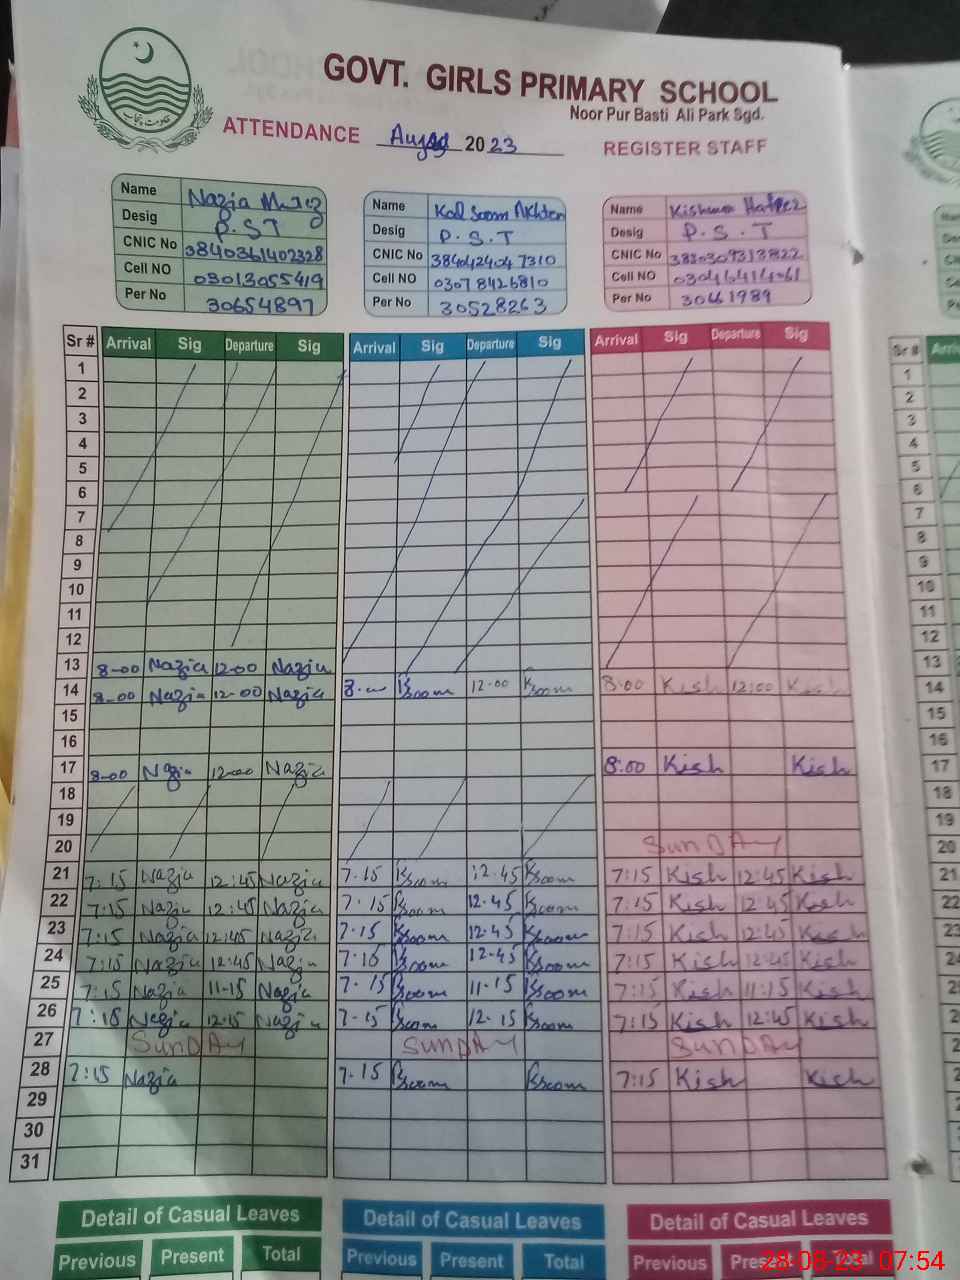 GOVT. GIRLS PRIMARY SCHOOL
Noor Pur Basti Ali Park Sgd.
ATTENDANCE 2023
REGISTER STAFF
حکومت پنجاب
Name Nazia Name Kalsoom Akhter Name Hafeez
Desig P.S.T Desig P.S.T Desig P.S.T
CNIC No 3840361402328 CNIC No 3840424047310 CNIC No
Cell NO 03013055419 Cell NO 03078426810 Cell NO
Per No 30654897 Per No 30528263 Per No 30661989
Sr # Arrival Sig Departure Sig Arrival Sig Departure Sig Arrival Sig Departure Sig Sr #
1 1
2 2
3 3
4 4
5 5
6 6
7 7
8 8
9 9
10 10
11 11
12 12
13 8-00 Nazia 12-00 Nazia 13
14 8-00 Nazia 12-00 Nazia Ksoom 12-00 Ksoom 8:00 Kish 12:00 Kish 14
15 15
16 16
17 8-00 Nazia 12-00 Nazia 8:00 Kish Kish 17
18 18
19 19
20 SUNDAY 20
21 7:15 Nazia 12:45 Nazia 7.15 Ksoom 12.45 Ksoom 7:15 Kish 12:45 Kish 21
22 7:15 Nazia 12:45 Nazia 7.15 Ksoom 12.45 Ksoom 7:15 Kish 12:45 Kish 22
23 7:15 Nazia 12:45 Nazia 7.15 Ksoom 12.45 Ksoom 7:15 Kish 12:45 Kish
24 7:15 Nazia 12:45 Nazia 7.15 Ksoom 12-45 Ksoom 7:15 Kish 12:45 Kish
25 7:15 Nazia 11-15 Nazia 7.15 Ksoom 11-15 Ksoom 7:15 Kish 11:15 Kish
26 7:15 Nazia 12-15 Nazia 7-15 Ksoom 12.15 Ksoom 7:15 Kish 12:45 Kish
27 SUNDAY SUNDAY SUNDAY
28 7:15 Nazia 7.15 Ksoom Ksoom 7:15 Kish Kish
29
30
31
Detail of Casual Leaves Detail of Casual Leaves Detail of Casual Leaves
Previous Present Total Previous Present Total Previous Present Total
28-08-23 07:54